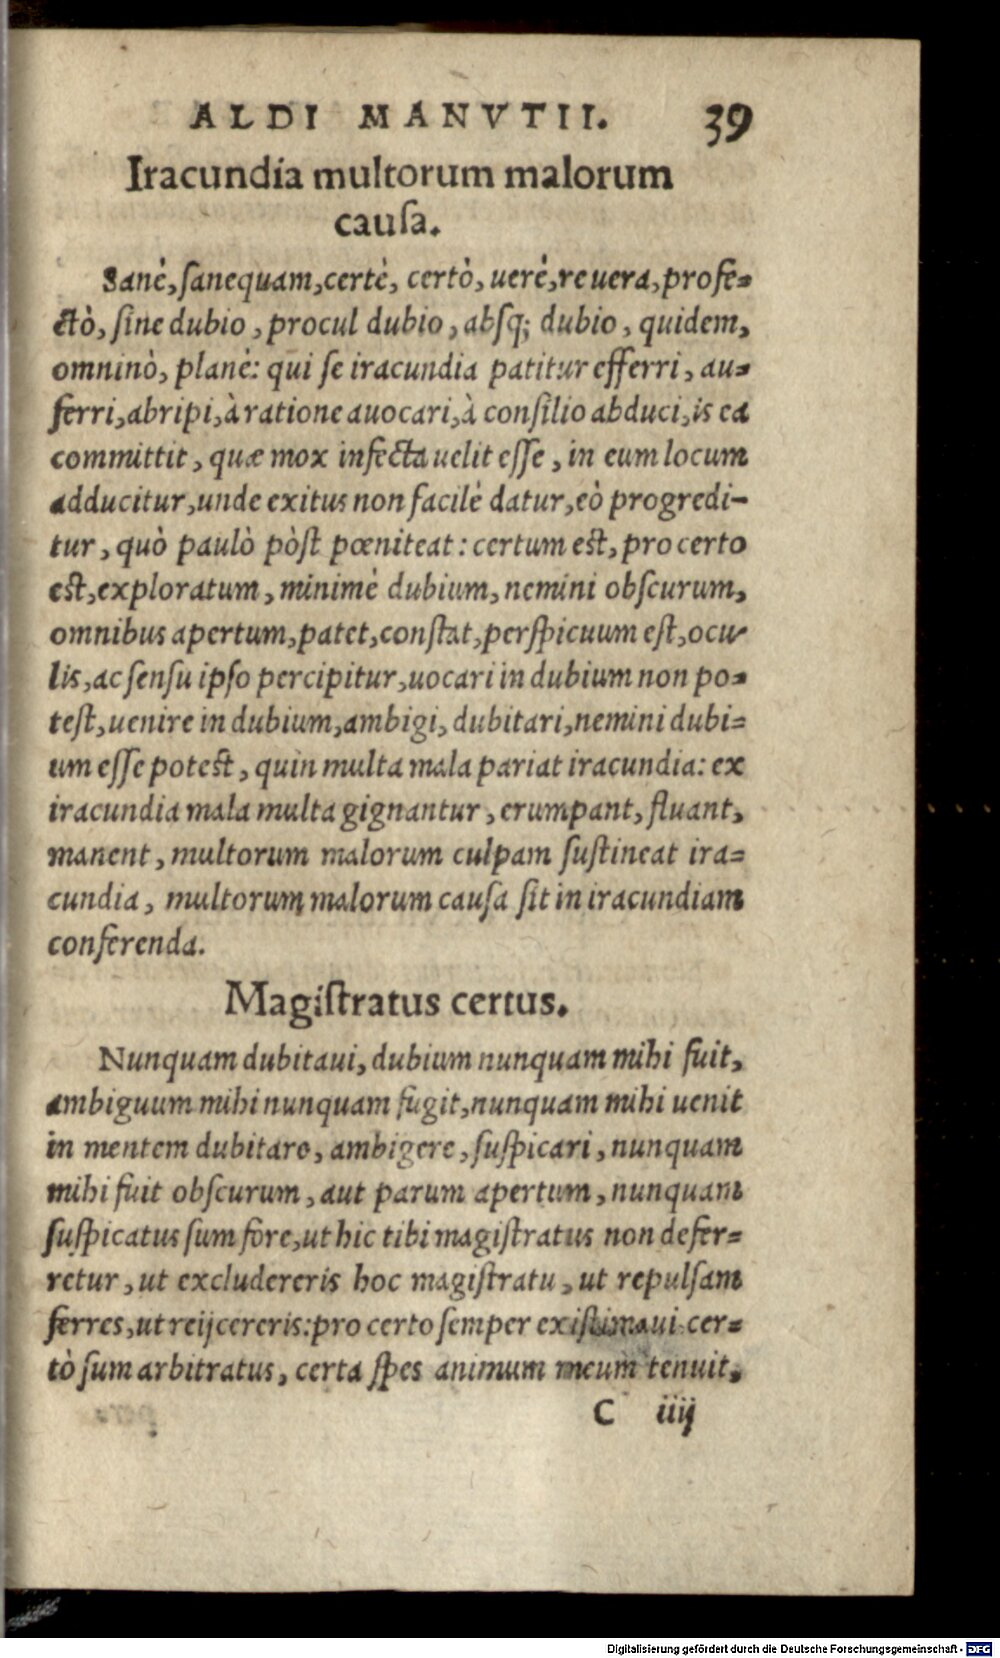 ALDI MANVTII. 39
Iracundia multorum malorum
cauſa.
Sanè, ſanequam, certè, certò, uerè, re uera, profe=
ctò, ſine dubio, procul dubio, abſq; dubio, quidem,
omninò, planè: qui ſe iracundia patitur efferri, au=
ferri, abripi, à ratione auocari, à conſilio abduci, is ea
committit, quæ mox infecta uelit eſſe, in eum locum
adducitur, unde exitus non facilè datur, eò progredi-
tur, quò paulò pòſt pœniteat: certum eſt, pro certo
eſt, exploratum, minimè dubium, nemini obſcurum,
omnibus apertum, patet, conſtat, perſpicuum eſt, ocu-
lis, ac ſenſu ipſo percipitur, uocari in dubium non po=
teſt, uenire in dubium, ambigi, dubitari, nemini dubi=
um eſſe poteſt, quin multa mala pariat iracundia: ex
iracundia mala multa gignantur, erumpant, fluant,
manent, multorum malorum culpam ſuſtineat ira=
cundia, multorum malorum cauſa ſit in iracundiam
conferenda.
Magiſtratus certus.
Nunquam dubitaui, dubium nunquam mihi fuit,
ambiguum mihi nunquam fugit, nunquam mihi uenit
in mentem dubitare, ambigere, ſuſpicari, nunquam
mihi fuit obſcurum, aut parum apertum, nunquam
ſuſpicatus ſum fore, ut hic tibi magiſtratus non defer=
retur, ut excludereris hoc magiſtratu, ut repulſam
ferres, ut reijcereris: pro certo ſemper exiſtimaui cer=
tò ſum arbitratus, certa ſpes animum meum tenuit,
C iiij
Digitalisierung gefördert durch die Deutsche Forschungsgemeinschaft - DFG